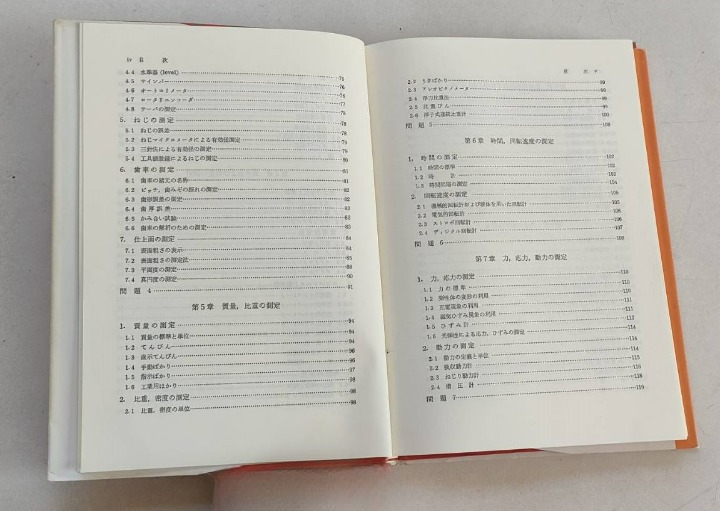 iv 目 次
4.4 水準器 (level) 75
4.5 サインバー 76
4.6 オートコリメータ 76
4.7 ロータリエンコーダ 77
4.8 テーパの測定 78
5. ねじの測定 78
5.1 ねじの誤差 78
5.2 ねじマイクロメータによる有効径測定 78
5.3 三針法による有効径の測定 79
5.4 工具顕微鏡によるねじの測定 80
6. 歯車の測定
6.1 歯車の諸元の名称
6.2 ピッチ，歯みぞの振れの測定
6.3 歯形誤差の測定 82
6.4 歯厚誤差
6.5 かみ合い試験
6.6 歯車の解析のための測定
7. 仕上面の測定 84
7.1 表面粗さの表示
7.2 表面粗さの測定法
7.3 平面度の測定
7.4 真円度の測定
問題 4 91
第5章 質量，比重の測定
1. 質量の測定 94
1.1 質量の標準と単位 94
1.2 てんびん 94
1.3 直示てんびん 96
1.4 手動ばかり 96
1.5 指示ばかり 97
1.6 工業用はかり 98
2. 比重，密度の測定 98
2.1 比重，密度の単位 98
目 次
2.2 うきばかり 99
2.3 アレオピクノメータ 99
2.4 浮力比重法
2.5 比重びん
2.6 浮子式連続比重計
問題 5
第6章 時間，回転速度の測定
1. 時間の測定 102
1.1 時間の標準 102
1.2 時計
1.3 時間間隔の測定 104
2. 回転速度の測定
2.1 機械的回転計および液体を用いた回転計
2.2 電気的回転計
2.3 ストロボ回転計
2.4 ディジタル回転計
問題 6
第7章 力，応力，動力の測定
1. 力，応力の測定 110
1.1 力の標準 110
1.2 弾性体の変形の利用
1.3 圧電現象の利用
1.4 磁気ひずみ現象の利用
1.5 ひずみ計
1.6 光弾性による応力，ひずみの測定 114
2. 動力の測定 114
2.1 動力の定義と単位 114
2.2 吸収動力計
2.3 ねじり動力計 115
2.4 指圧計 118
問題 7 119